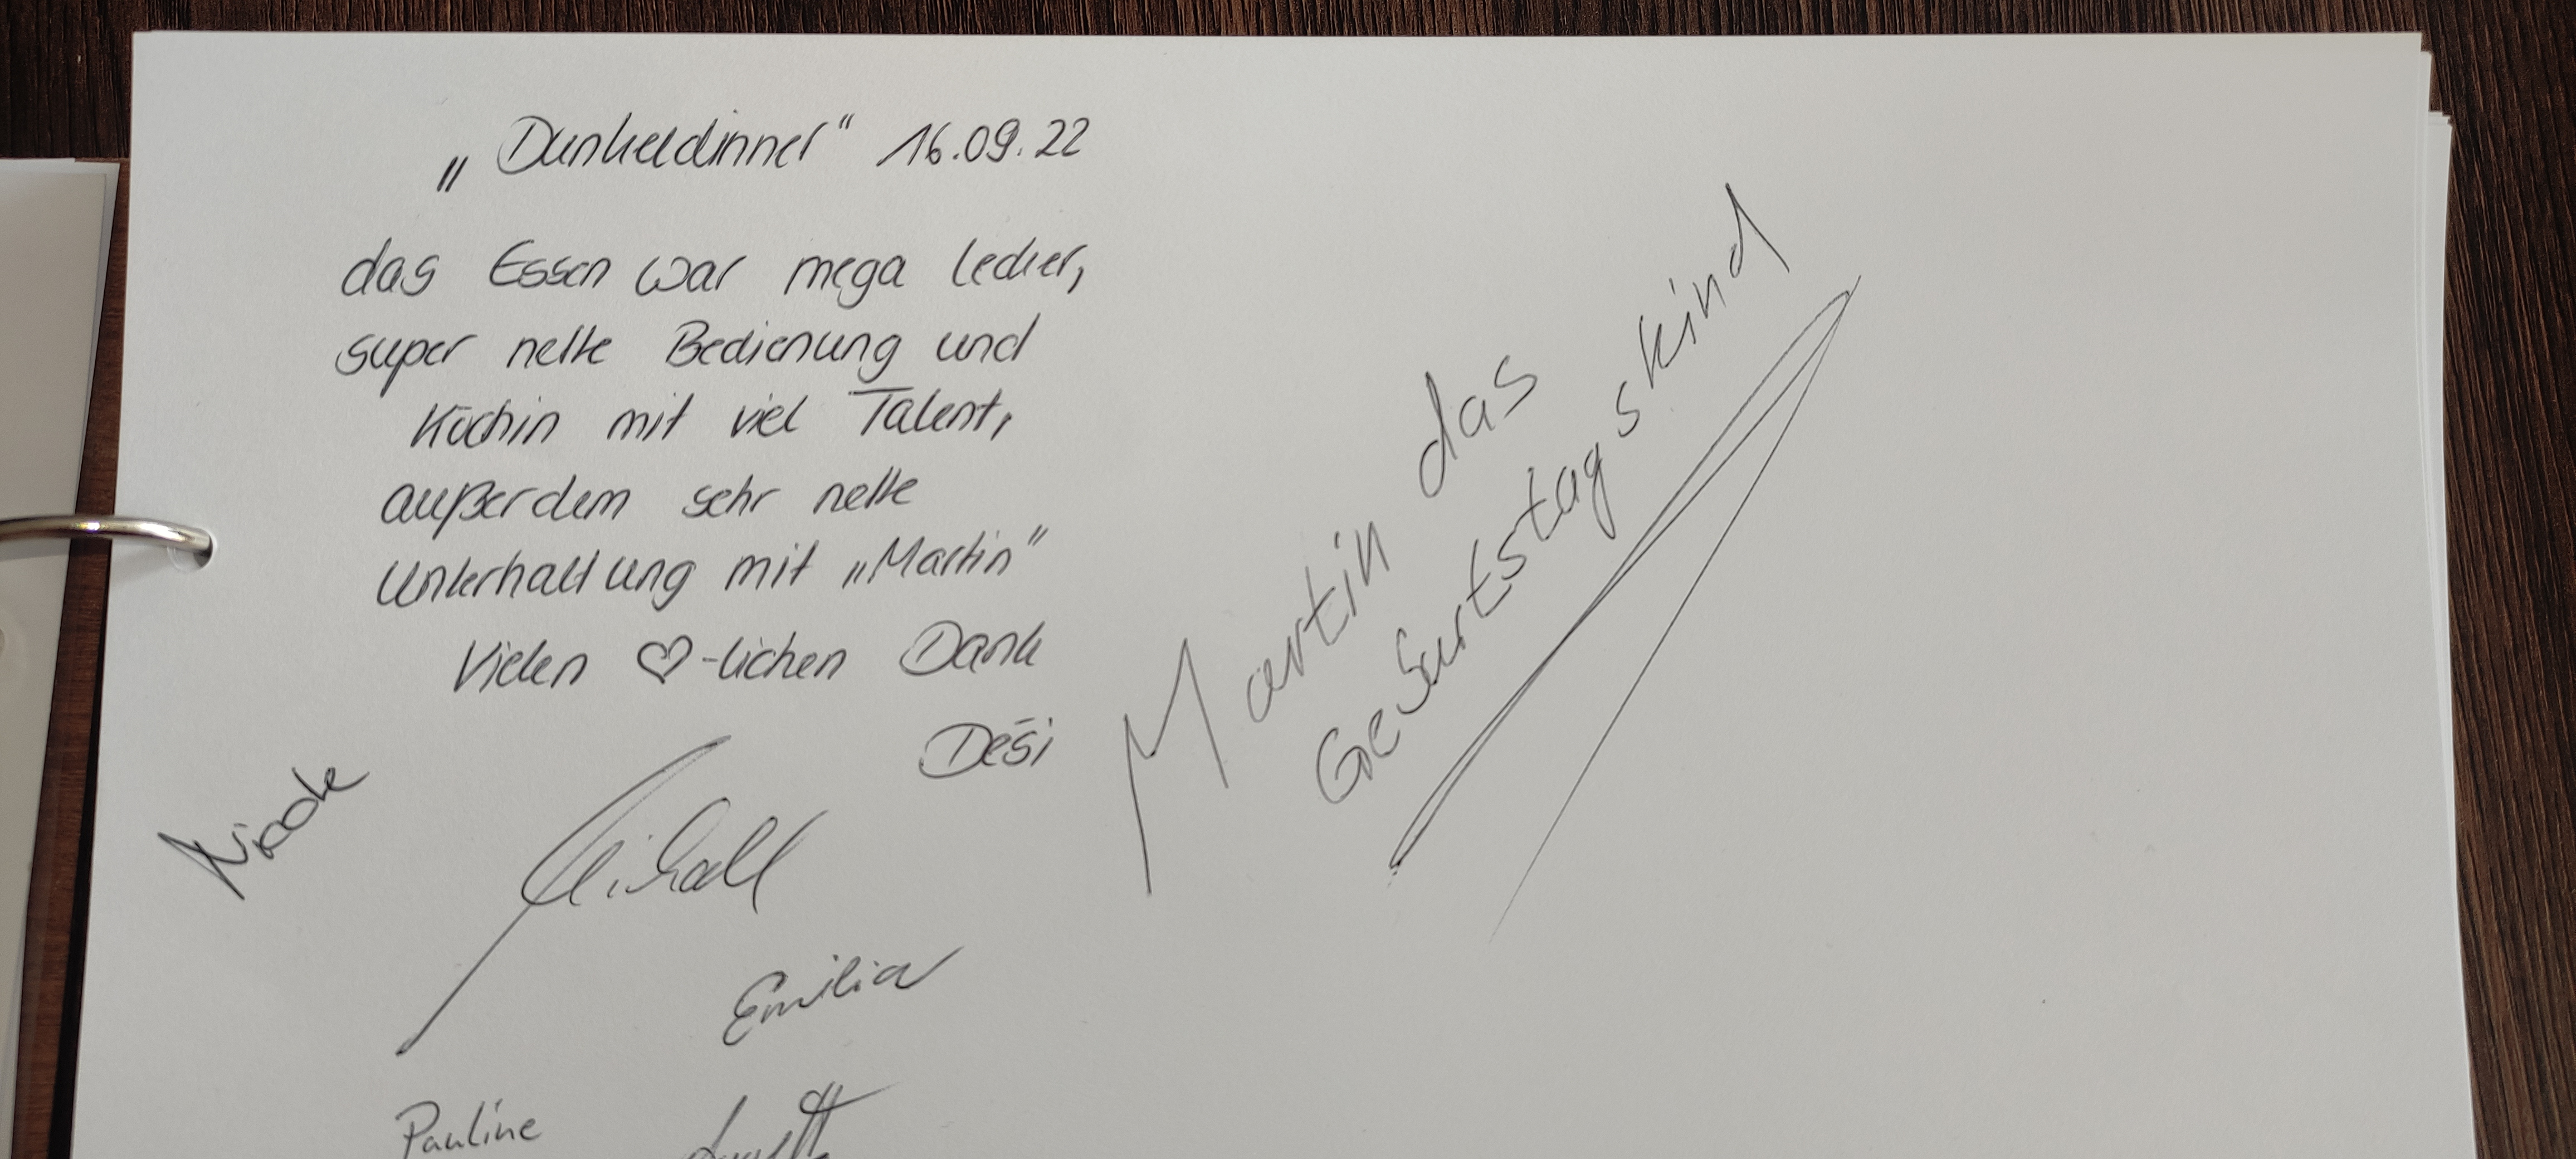 „Dunkeldinner“ 16.09.22
das Essen war mega lecker,
super nette Bedienung und
Köchin mit viel Talent,
außerdem sehr nette
Unterhaltung mit „Martin“
Vielen ♡-lichen Dank
Desi
Nicole
Michael
Emilia
Pauline
Martin das
Geburtstagskind